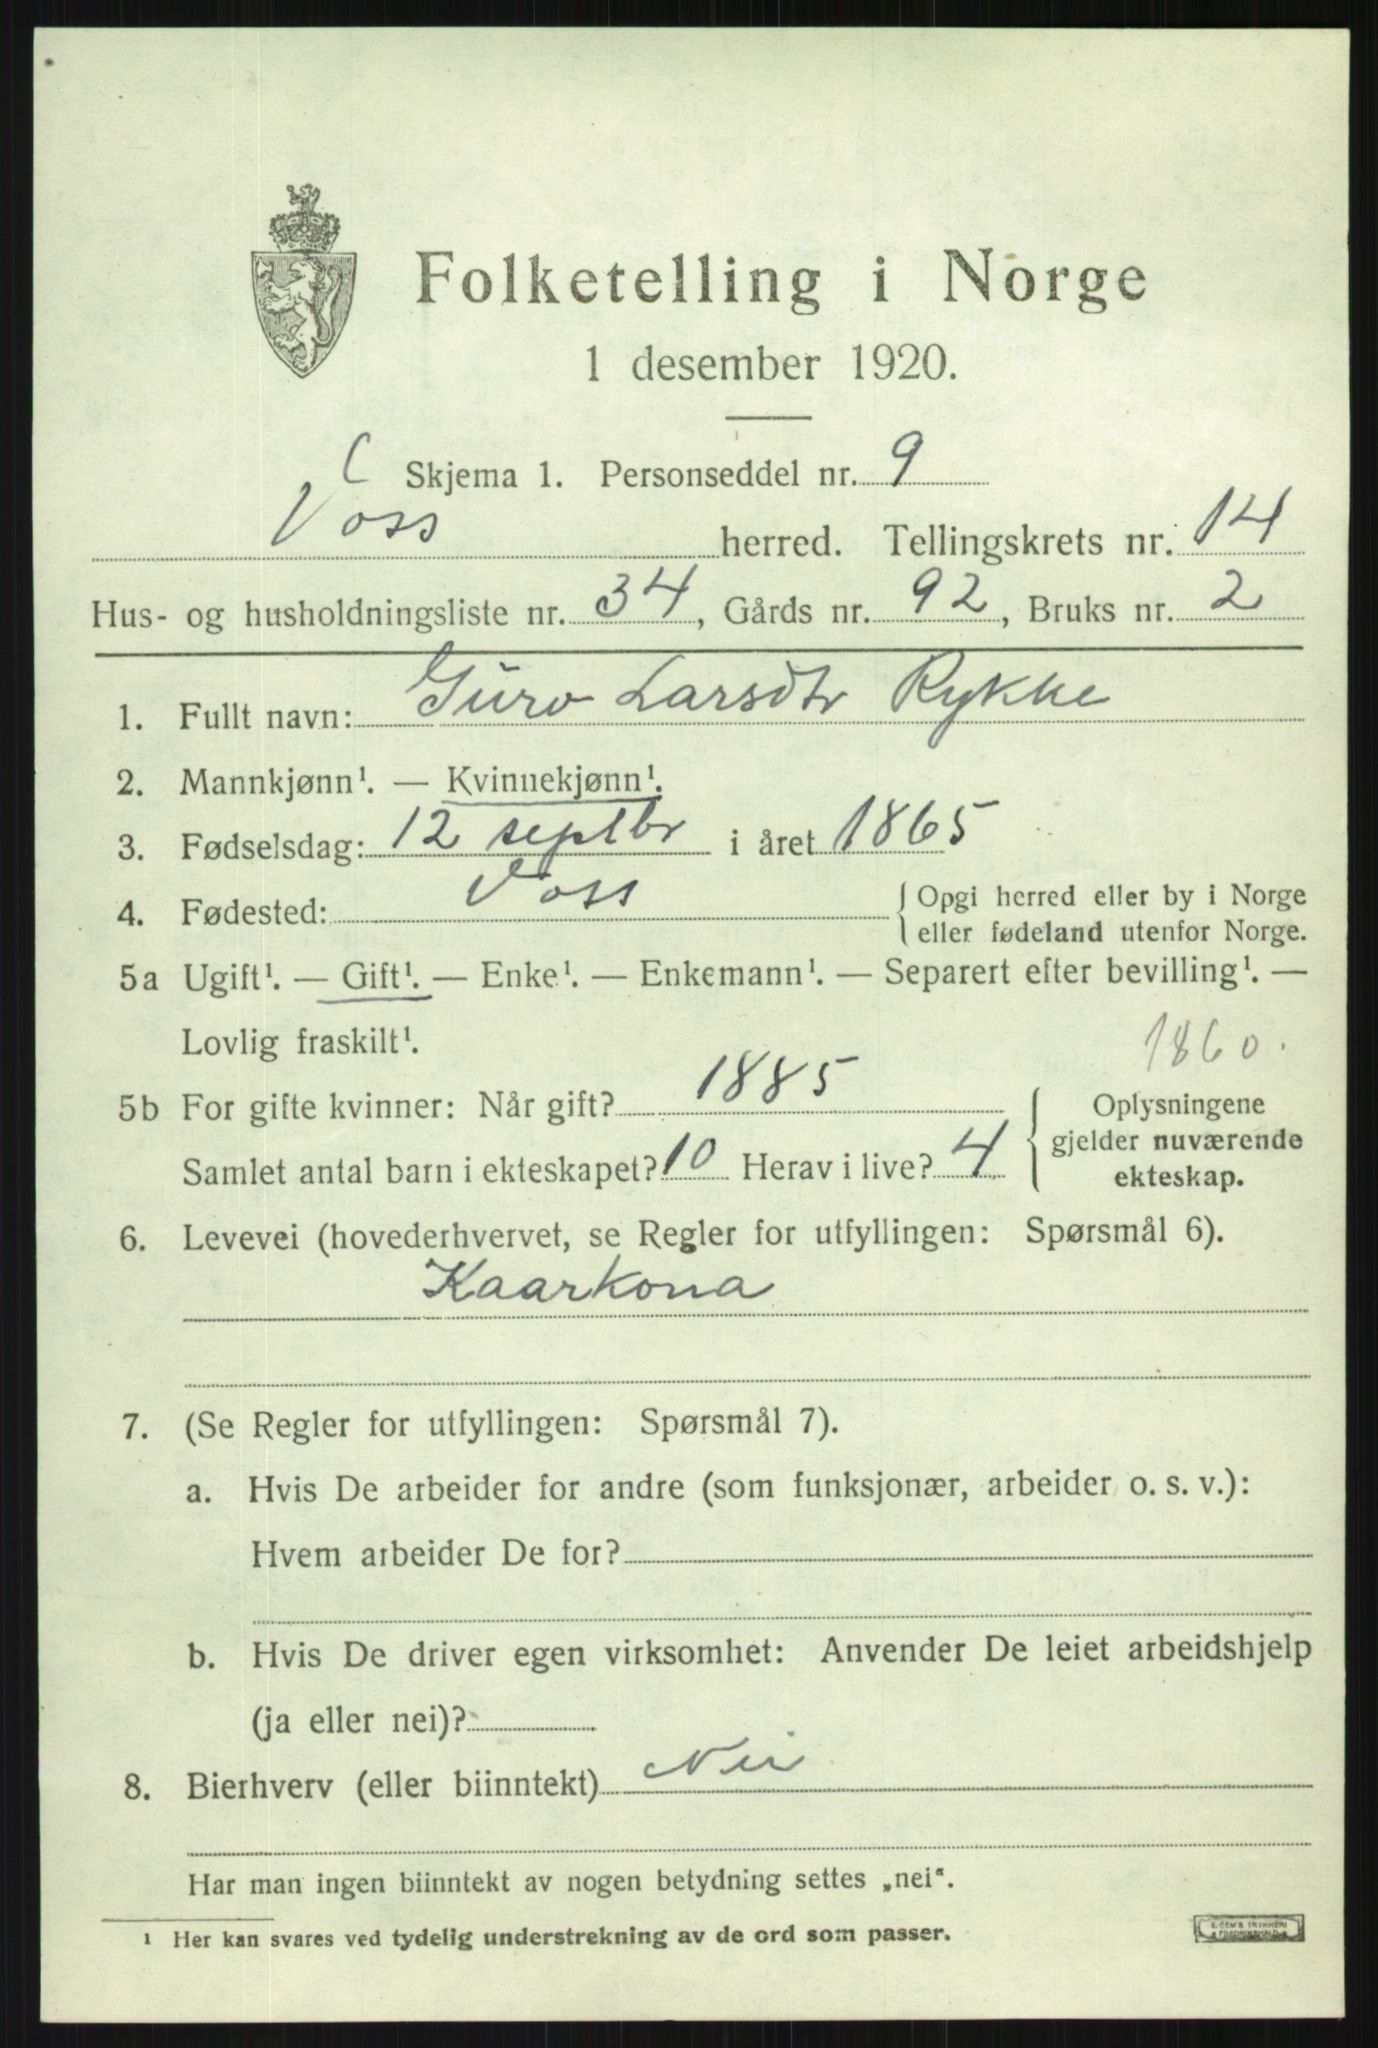 Folketelling i Norge
1 desember 1920.
C Skjema 1. Personseddel nr. 9
Voss herred. Tellingskrets nr. 14
Hus- og husholdningsliste nr. 34, Gårds nr. 92, Bruks nr. 2
1. Fullt navn: Guro Larsdtr Rykke
2. Mannkjønn¹. — Kvinnekjønn¹.
3. Fødselsdag: 12 septbr i året 1865
4. Fødested: Voss { Opgi herred eller by i Norge
eller fødeland utenfor Norge.
5a Ugift¹. — Gift¹. — Enke¹. — Enkemann¹. — Separert efter bevilling¹. —
Lovlig fraskilt¹. 1860.
5b For gifte kvinner: Når gift? 1885
Samlet antal barn i ekteskapet? 10 Herav i live? 4
{ Oplysningene
gjelder nuværende
ekteskap.
6. Levevei (hovederhvervet, se Regler for utfyllingen: Spørsmål 6).
Kaarkona
7. (Se Regler for utfyllingen: Spørsmål 7).
a. Hvis De arbeider for andre (som funksjonær, arbeider o. s. v.):
Hvem arbeider De for?
b. Hvis De driver egen virksomhet: Anvender De leiet arbeidshjelp
(ja eller nei)?
8. Bierhverv (eller biinntekt) Nei
Har man ingen biinntekt av nogen betydning settes „nei“.
¹ Her kan svares ved tydelig understrekning av de ord som passer.